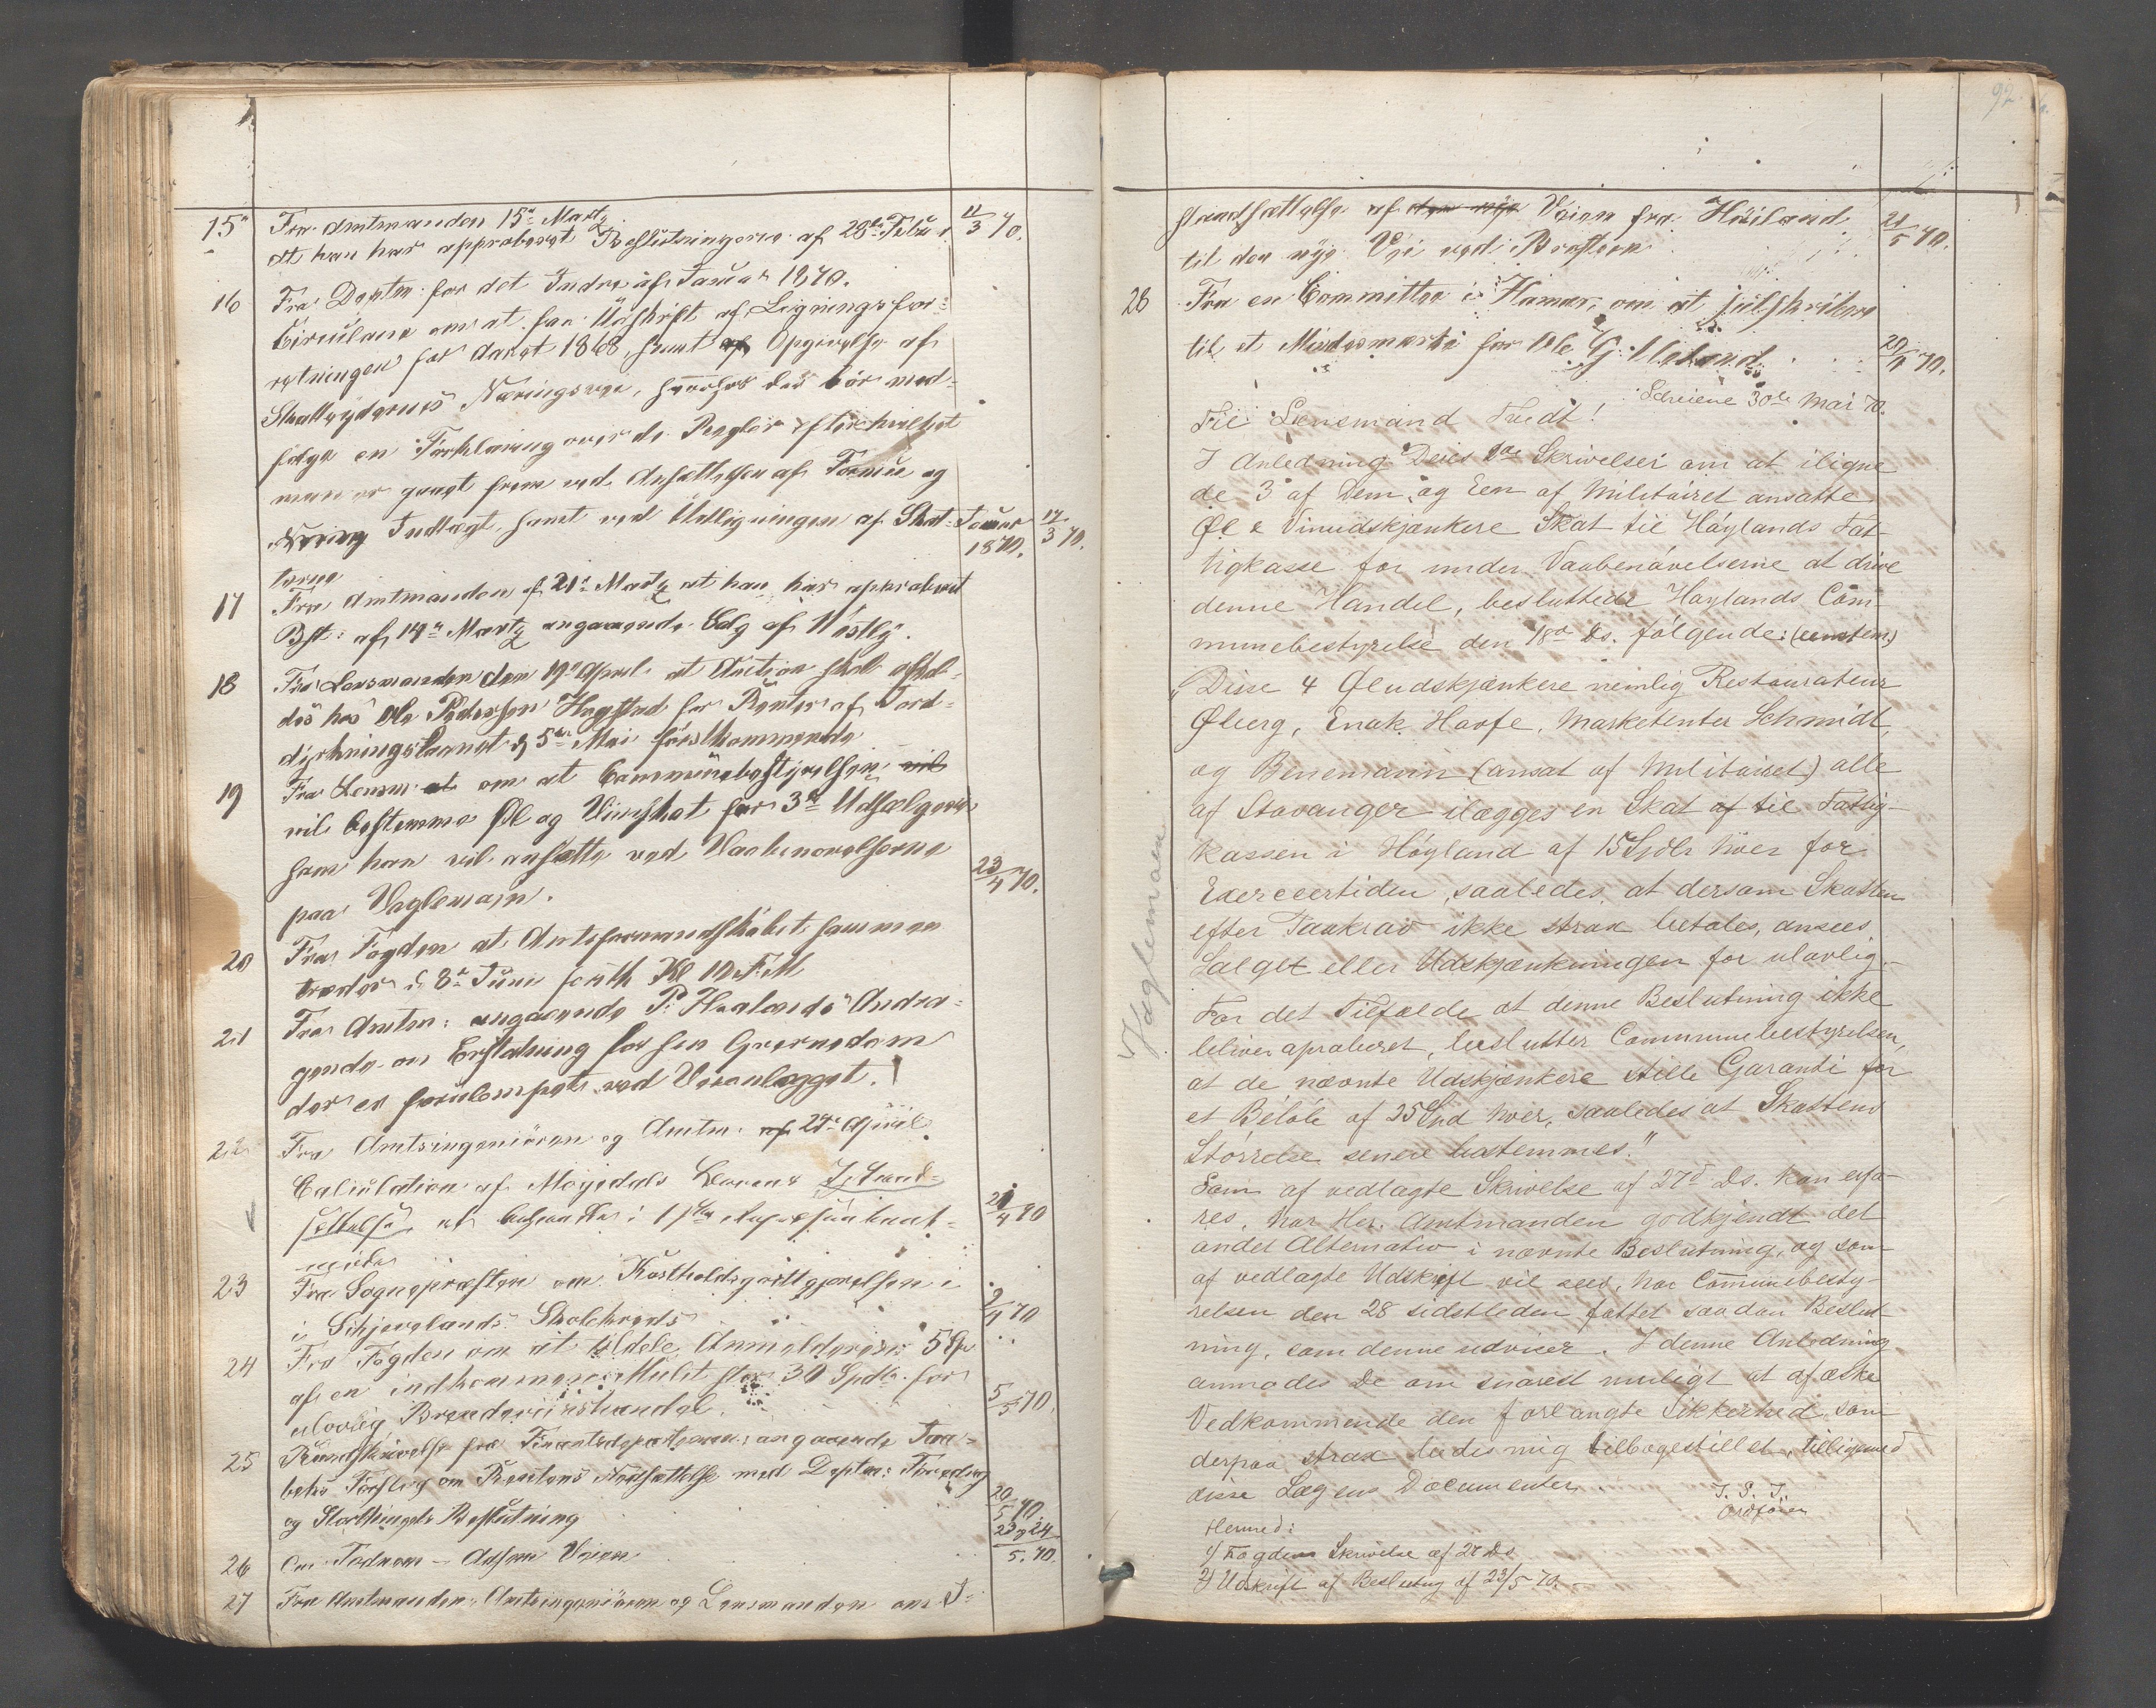 15de Fra Amtmanden 15de Martz
at han har approberet Beslutningerne af 28de Febru 11/3 70.
16 Fra Deptm: for det Indre af Januar 1870.
Circulære om at faa Udskrift af Ligningsfor-
retningen for Aaret 1868, samt Opgivelse af
Skatteydernes Næringsvei, hvorhos det bör med-
følge en Forklaring over de Regler efter hvilket
man er gaaet frem ved Ansættelsen af Formue og
Næring Indtægt, samt ved Udligningen af Skat- Januar 17/3 70.
terne 1870.
17 Fra Amtmanden af 21de Martz at han har approberet
Bst: af 14de Martz angaaende Salg af Westly.
18 Fra Lensmanden den 19de April at Auction skal afhol-
des hos Ole Pedersen Hogstad for Renter af Jord-
dyrkningslaanet d 5te Mai førstkommende
19 Fra Lensm: at om at Communebestyrelsen vil
vil bestemme Øl og Vinskat for 3de Udsælgere
som han vil ansætte ved Vaabenøvelserne
paa Vaglemoen. 23/4 70.
20 Fra Fogden at Amtsformandskabet sammen
træder d 8de Juni førsth Kl 10 F.M
21 Fra Amtm: angaaende P. Haalands Andra-
gende om Erstatning for sin Qvernedam
der er forulempet ved Veianlægget.
22 Fra Amtsingeniören og Amtm: af 24de April
Calculation af Møgedals Levens Istand-
sættelse, at
21/4 70
23 Fra Sognepræsten om Kostholdsgodtgjørelsen i
i Skjevelands Skolekreds 2/4 70
24 Fra Fogden om at tildele Anmelderen 5 Sp
af en indkommen Mulct stor 30 Spdlr. for
ulovlig Brændeviinshandel. 5/5 70.
25 Rundskrivelse fra Finantsdepartemen: angaaende Jaa-
bæks Forslag om Rentens Nedsættelse med Deptm: Foredrag
og Storthingets Beslutning 20/5 70.
26 Om Todnem – Adsem Veien 23 & 24 5. 70.
27 Fra Amtmanden, Amtsingeniören og Lensmanden om I-
92
standsættelse af den nye Veien fra Höiland
til den nye Vei ved Brastein 21/5 70.
28 Fra en Committee i Hamar, om at subskribere
til et Mindesmærke for Ole G: Ueland. 29/4 70.
Scheiene 30te Mai 70.
Til Lensmand Tvedt!
I Anledning Deres 2de Skrivelser om at iligne
de 3 af Dem, og Een af Militairet ansatte
Øl & Vinudskjænkere Skat til Høylands Fat-
tigkasse for under Vaabenøvelserne at drive
denne Handel, besluttede Høylands Com-
munebestyrelse den 18de Ds. følgende: (eenstem)
"Disse 4 Øludskjænkere nemlig Restaurateur
Øberg, Enok Havfe, Marketenter Schmidt,
og Benemann (ansat af Militairet) alle
af Stavanger ilægges en Skat af til Fattig-
kassen i Høyland af 15 Spdlr hver for
Exerceertiden, saaledes, at dersom Skatten
efter Paakrav ikke strax betales, ansees
Salget eller Udskjænkningen for ulovlig.–
For det Tilfælde at denne Beslutning ikke
bliver aproberet, beslutter Communebestyrelsen,
at de nævnte Udskjænkere stille Garanti for
et Beløb af 25 Spd hver, saaledes at Skattens
Størrelse senere bestemmes."
Som af vedlagte Skrivelse af 27de Ds. kan erfa-
res, har Her. Amtmanden godkjendt det
andet Alternativ i nævnte Beslutning, og som
af vedlagte Udskrift vil sees, har Communebesty-
relsen den 28 sidstleden fattet saadan Beslut-
ning, som denne udviser. I denne Anledning
anmodes De om snarest muligt at afæske
Vedkommende den forlangte Sikkerhed, som
derpaa strax bedes mig tilbagestillet, tilligemed
disse Sagens Documenter.
J. S. J.
Ordfører
Hermed:
1/ Fogdens Skrivelse af 27 Ds.
2/ Udskrift af Beslutng af 23/5 70.–
Vaglemoen